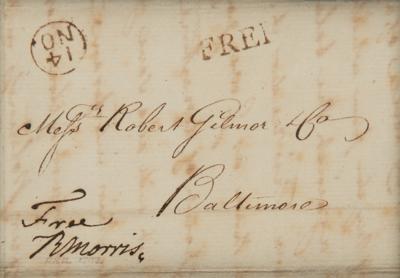 14
NO
FREE
Messrs. Robert Gilmor & Co
Baltimore
Free
R Morris.